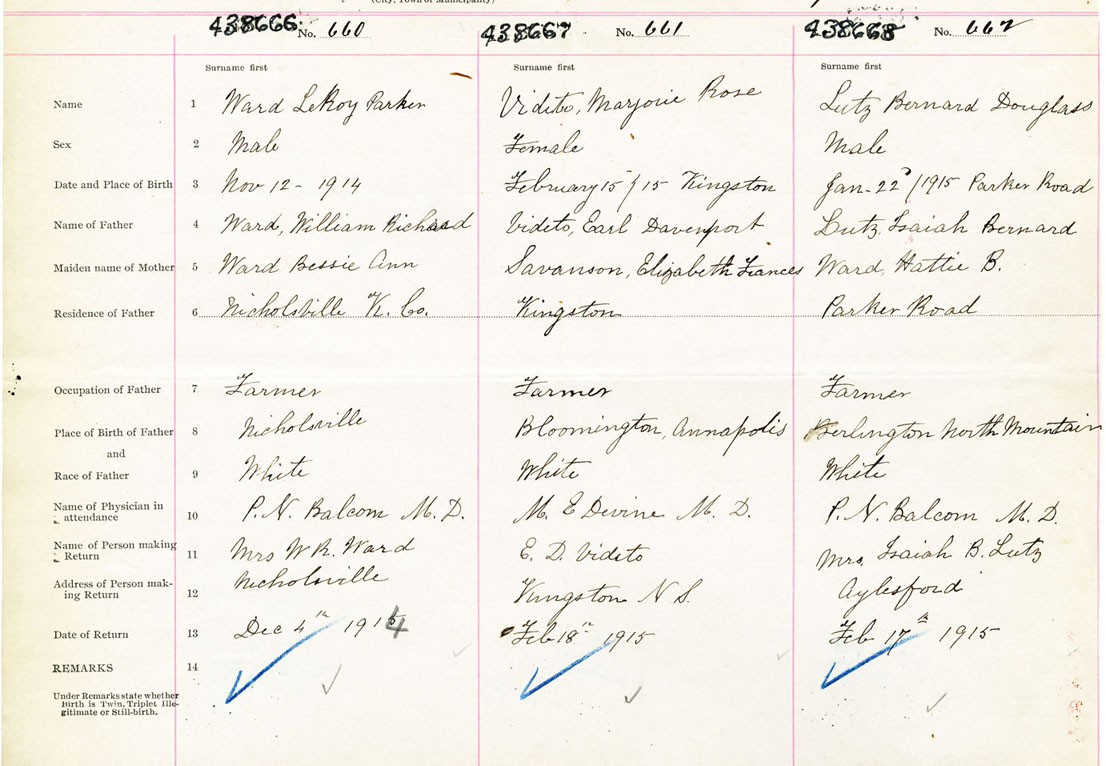 (City, Town or Municipality)
438666 No. 660 438667 No. 661 438668 No. 662
Surname first Surname first Surname first
Name 1 Ward LeRoy Parker Videto, Marjorie Rose Lutz Bernard Douglass
Sex 2 Male Female Male
Date and Place of Birth 3 Nov 12 - 1914 February 15 / 15 Kingston Jan - 22 / 1915 Parker Road
Name of Father 4 Ward, William Richard Videto, Earl Davenport Lutz, Isaiah Bernard
Maiden name of Mother 5 Ward Bessie Ann Savanson, Elizabeth Frances Ward, Hattie B.
Residence of Father 6 Nicholsville K. Co. Kingston Parker Road
Occupation of Father 7 Farmer Farmer Farmer
Place of Birth of Father 8 Nicholsville Bloomington, Annapolis Berlington North Mountain
and
Race of Father 9 White White White
Name of Physician in
attendance 10 P. N. Balcom M. D. M. E Divine M. D. P. N. Balcom M. D.
Name of Person making
Return 11 Mrs W R. Ward E. D. Videto Mrs. Isaiah B. Lutz
Address of Person mak-
ing Return 12 Nicholsville Kingston N S. Aylesford
Date of Return 13 Dec 4th 1914 Feb 18th 1915 Feb 17th 1915
REMARKS 14
Under Remarks state whether
Birth is Twin, Triplet Ille-
gitimate or Still-birth.